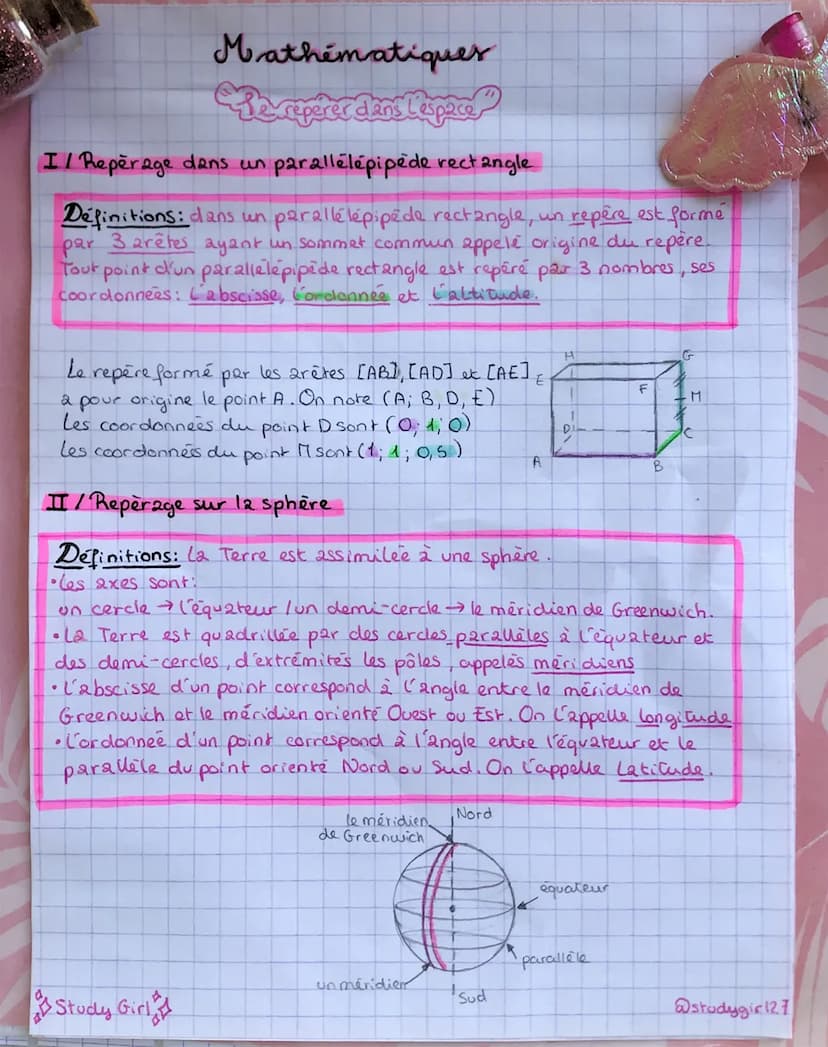 Mathématiques
Se repérer dans l'espace
I / Repèrage dans un parallélépipède rectangle
Définitions: dans un parallélépipède rectangle, un repère est formé
par 3 arêtes ayant un sommet commun appelé origine du repère.
Tout point d'un parallélépipède rectangle est repéré par 3 nombres, ses
coordonnées: L'abscisse, l'ordonnée et L'altitude.
Le repère formé par les arêtes [AB], [AD] et [AE]
a pour origine le point A. On note (A; B, D, E)
Les coordonnées du point D sont (0; 1; 0)
Les coordonnées du point M sont (1; 1; 0,5)
H
G
E
F
M
D
C
A
B
II / Repèrage sur la sphère
Définitions: La Terre est assimilée à une sphère.
• Les axes sont:
un cercle → l'équateur / un demi-cercle → le méridien de Greenwich.
• La Terre est quadrillée par des cercles parallèles à l'équateur et
des demi-cercles, d'extrémités les pôles, appelés méridiens
• L'abscisse d'un point correspond à l'angle entre le méridien de
Greenwich et le méridien orienté Ouest ou Est. On l'appelle Longitude
• L'ordonneé d'un point correspond à l'angle entre l'équateur et le
parallèle du point orienté Nord ou Sud. On l'appelle Latitude.
le méridien
de Greenwich
Nord
équateur
parallèle
un méridien
Sud
Study Girl
@studygirl27